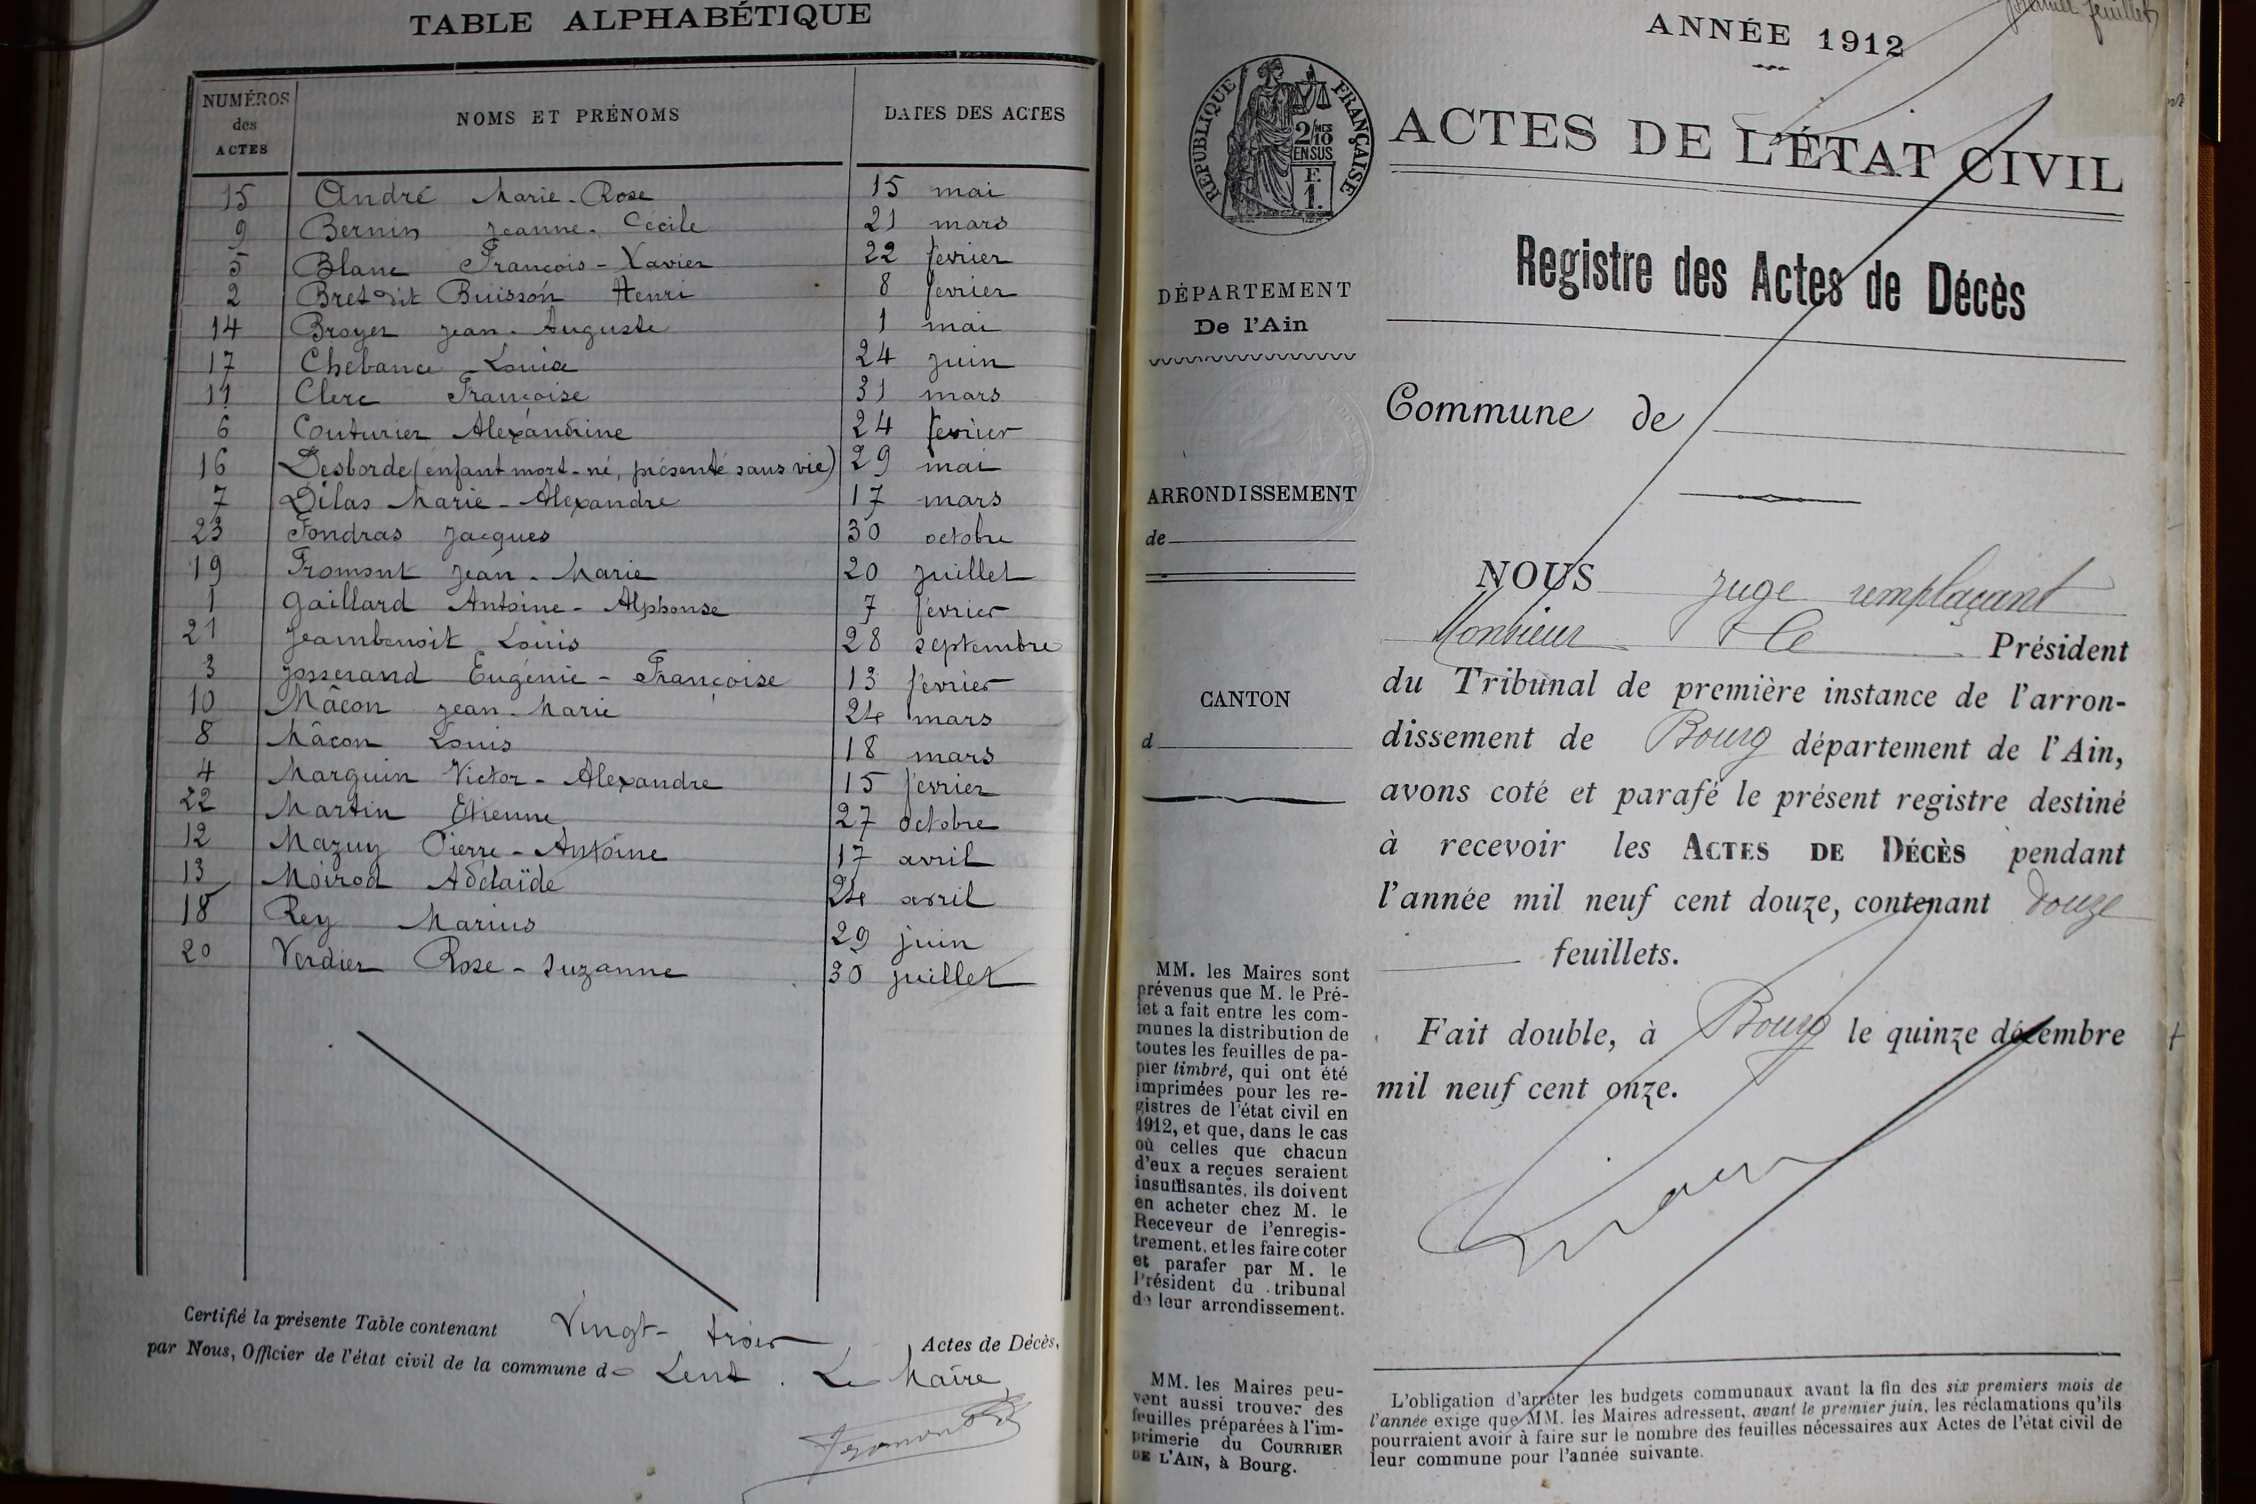 TABLE ALPHABÉTIQUE
NUMÉROS des ACTES NOMS ET PRÉNOMS DATES DES ACTES
15 André Marie-Rose 15 mai
9 Bernin Jeanne-Cécile 21 mars
5 Blanc François-Xavier 22 février
2 Bret dit Buisson Henri 8 février
14 Broyer Jean-Auguste 1 mai
17 Chebance Louise 24 juin
11 Clerc Françoise 31 mars
6 Couturier Alexandrine 24 février
16 Desborde (enfant mort-né, présenté sans vie) 29 mai
7 Dilas Marie-Alexandre 17 mars
23 Fondras Jacques 30 octobre
19 Fromont Jean-Marie 20 juillet
1 Gaillard Antoine-Alphonse 7 février
21 Jeambenoit Louis 28 septembre
3 Josserand Eugénie-Françoise 13 février
10 Mâcon Jean-Marie 24 mars
8 Mâcon Louis 18 mars
4 Marguin Victor-Alexandre 15 février
22 Martin Etienne 27 octobre
12 Mazuy Pierre-Antoine 17 avril
13 Moirod Adélaïde 24 avril
18 Rey Marius 29 juin
20 Verdier Rose-Suzanne 30 juillet
Certifié la présente Table contenant Vingt-trois Actes de Décès,
par Nous, Officier de l'état civil de la commune de Lent. Le Maire
Fromont
feuillet
ANNÉE 1912
RÉPUBLIQUE FRANÇAISE
2/10 MES
EN SUS
F.
1.
ACTES DE L'ÉTAT CIVIL
Registre des Actes de Décès
DÉPARTEMENT
De l'Ain
Commune de
ARRONDISSEMENT
de
CANTON
d
NOUS Juge remplaçant
Monsieur le Président
du Tribunal de première instance de l'arron-
dissement de Bourg département de l'Ain,
avons coté et parafé le présent registre destiné
à recevoir les ACTES DE DÉCÈS pendant
l'année mil neuf cent douze, contenant douze
feuillets.
Fait double, à Bourg le quinze décembre
mil neuf cent onze.
MM. les Maires sont
prévenus que M. le Pré-
fet a fait entre les com-
munes la distribution de
toutes les feuilles de pa-
pier timbré, qui ont été
imprimées pour les re-
gistres de l'état civil en
1912, et que, dans le cas
où celles que chacun
d'eux a reçues seraient
insuffisantes, ils doivent
en acheter chez M. le
Receveur de l'enregis-
trement, et les faire coter
et parafer par M. le
Président du tribunal
de leur arrondissement.
MM. les Maires peu-
vent aussi trouver des
feuilles préparées à l'im-
primerie du COURRIER
DE L'AIN, à Bourg.
L'obligation d'arrêter les budgets communaux avant la fin des six premiers mois de
l'année exige que MM. les Maires adressent, avant le premier juin, les réclamations qu'ils
pourraient avoir à faire sur le nombre des feuilles nécessaires aux Actes de l'état civil de
leur commune pour l'année suivante.